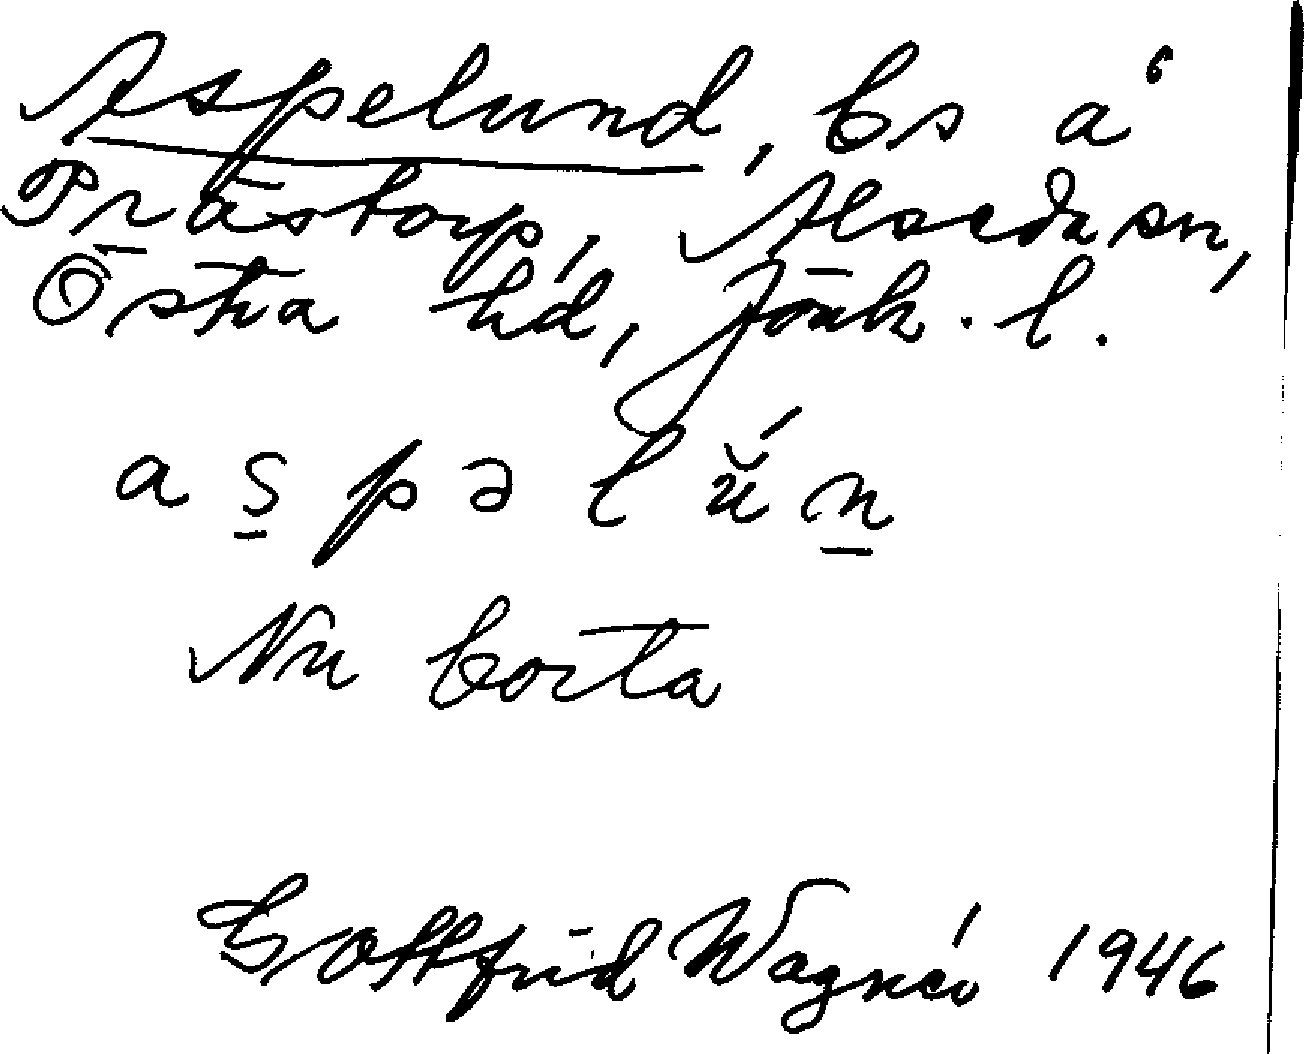 Aspelund, bs å
Prästorp, Alseda sn,
Östra hd, Jönk. l.
a s̲ p ə l ŭ́ n̲
Nu borta
Gottfrid Wagnér 1946